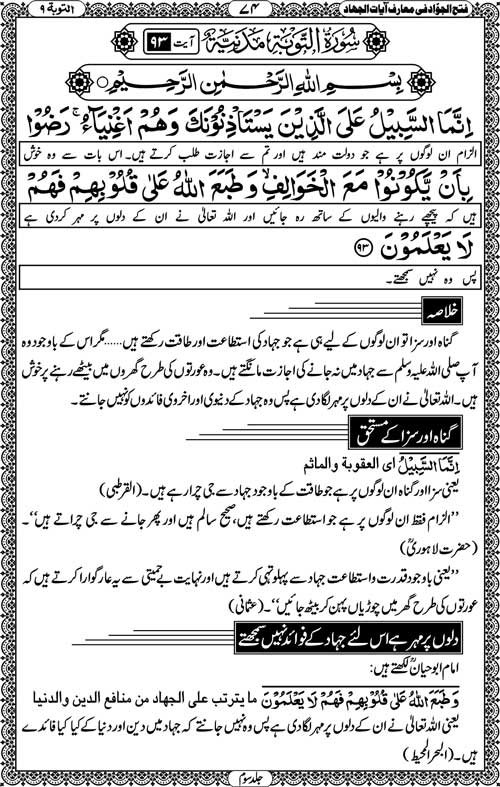 فتح الجوّاد فی معارف آیات الجهاد
۷۴
التوبة ۹
سُوْرَةُ التَّوْبَةِ مَدَنِيَّةٌ
آیت ۹۳
بِسْمِ اللهِ الرَّحْمٰنِ الرَّحِيْمِ
اِنَّمَا السَّبِيْلُ عَلَى الَّذِيْنَ يَسْتَاْذِنُوْنَكَ وَهُمْ اَغْنِيَآءُ ۚ رَضُوْا
الزام ان لوگوں پر ہے جو دولت مند ہیں اور تم سے اجازت طلب کرتے ہیں۔ اس بات سے وہ خوش
بِاَنْ يَّكُوْنُوْا مَعَ الْخَوَالِفِ ۙ وَطَبَعَ اللهُ عَلٰى قُلُوْبِهِمْ فَهُمْ
ہیں کہ پیچھے رہنے والیوں کے ساتھ رہ جائیں اور اللہ تعالیٰ نے ان کے دلوں پر مہر کردی ہے
لَا يَعْلَمُوْنَ ۹۳
پس وہ نہیں سمجھتے۔
خلاصہ
گناہ اور سزا تو ان لوگوں کے لیے ہی ہے جو جہاد کی استطاعت اور طاقت رکھتے ہیں......مگر اس کے باوجود وہ
آپ صلی اللہ علیہ وسلم سے جہاد میں نہ جانے کی اجازت مانگتے ہیں۔ وہ عورتوں کی طرح گھروں میں بیٹھے رہنے پر خوش
ہیں۔ اللہ تعالیٰ نے ان کے دلوں پر مہر لگا دی ہے پس وہ جہاد کے دنیوی اور اخروی فائدوں کو نہیں جانتے۔
گناہ اور سزا کے مستحق
اِنَّمَا السَّبِيْلُ ای العقوبة والمائم
یعنی سزا اور گناہ ان لوگوں پر ہے جو طاقت کے باوجود جہاد سے جی چرا رہے ہیں۔ (القرطبی)
’’الزام فقط ان لوگوں پر ہے جو استطاعت رکھتے ہیں، صحیح سالم ہیں اور پھر جانے سے جی چراتے ہیں‘‘۔
(حضرت لاہوریؒ)
’’یعنی باوجود قدرت و استطاعت جہاد سے پہلو تہی کرتے ہیں اور نہایت بے حمیتی سے یہ عار گوارا کرتے ہیں کہ
عورتوں کی طرح گھر میں چوڑیاں پہن کر بیٹھ جائیں‘‘۔ (عثمانی)
دلوں پر مہر ہے اس لئے جہاد کے فوائد نہیں سمجھتے
امام ابوحیانؒ لکھتے ہیں:
وَطَبَعَ اللهُ عَلٰى قُلُوْبِهِمْ فَهُمْ لَا يَعْلَمُوْنَ ما يترتب على الجهاد من منافع الدين والدنيا
یعنی اللہ تعالیٰ نے ان کے دلوں پر مہر لگا دی ہے پس وہ نہیں جانتے کہ جہاد میں دین اور دنیا کے کیا کیا فائدے
ہیں۔ (البحر المحیط)
جلد سوم